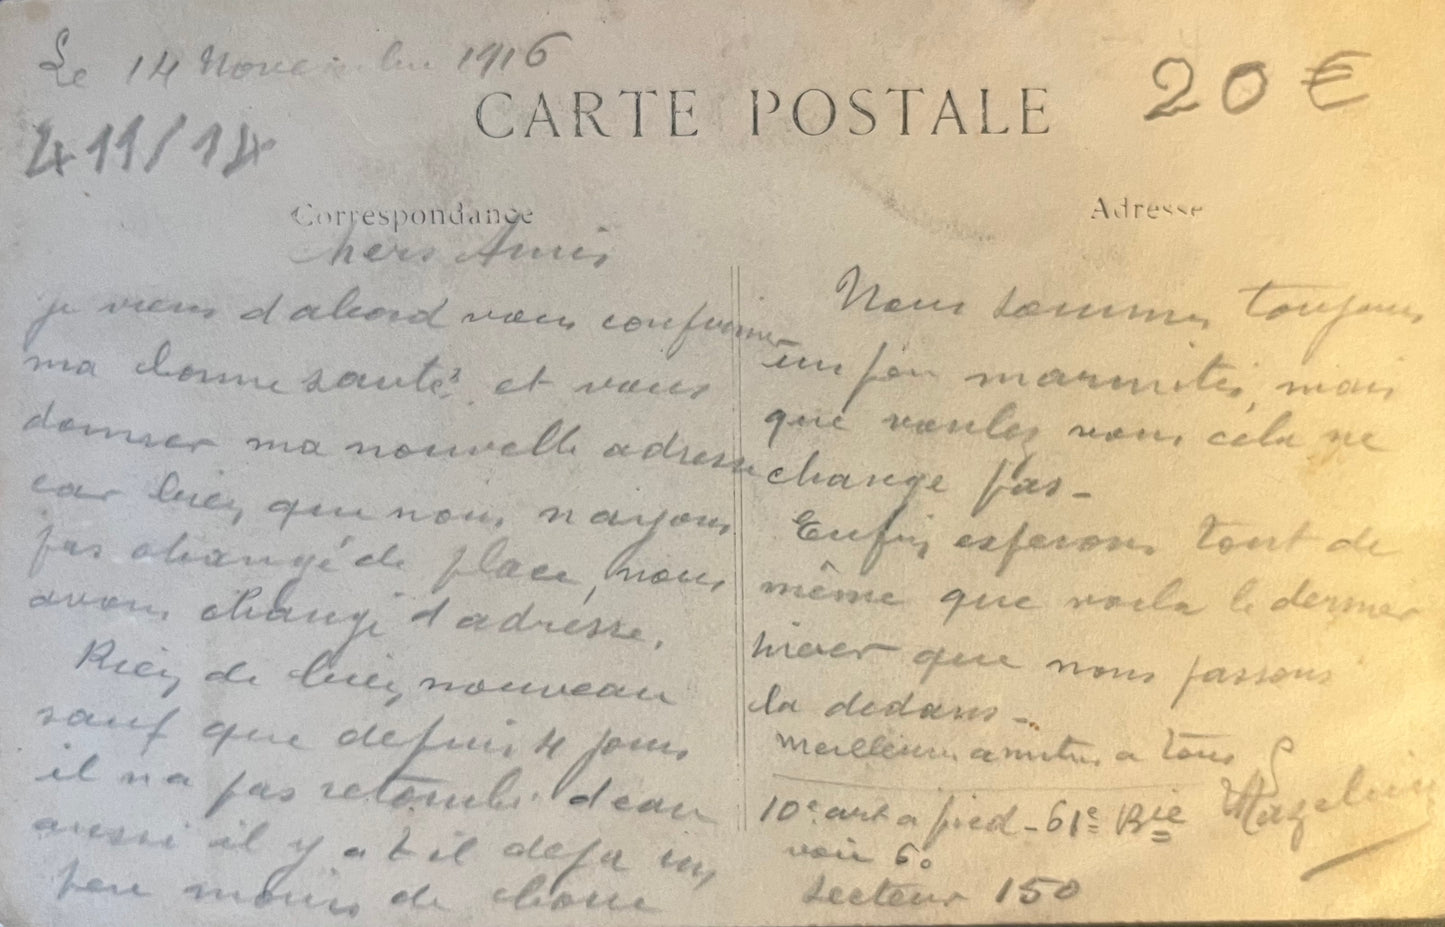 Le 14 Novembre 1916
CARTE POSTALE
20 €
411/14
Correspondance
Adresse
Chers Amis
je viens d abord vous confirmer
ma bonne santé, et vous
donner ma nouvelle adresse
car bien que nous n ayons
pas changé de place, nous
avons changé d adresse.
Rien de bien nouveau
sauf que depuis 4 jours
il n a pas retombé d eau
aussi il y a t il deja un
peu moins de boue
Nous sommes toujours
un peu marmités, mais
que voulez vous cela ne
change pas -
Enfin esperons tout de
même que voila le dernier
hiver que nous passons
la dedans -
Meilleures amities a tous
10e art a pied - 61e Bie
voie 60
Secteur 150